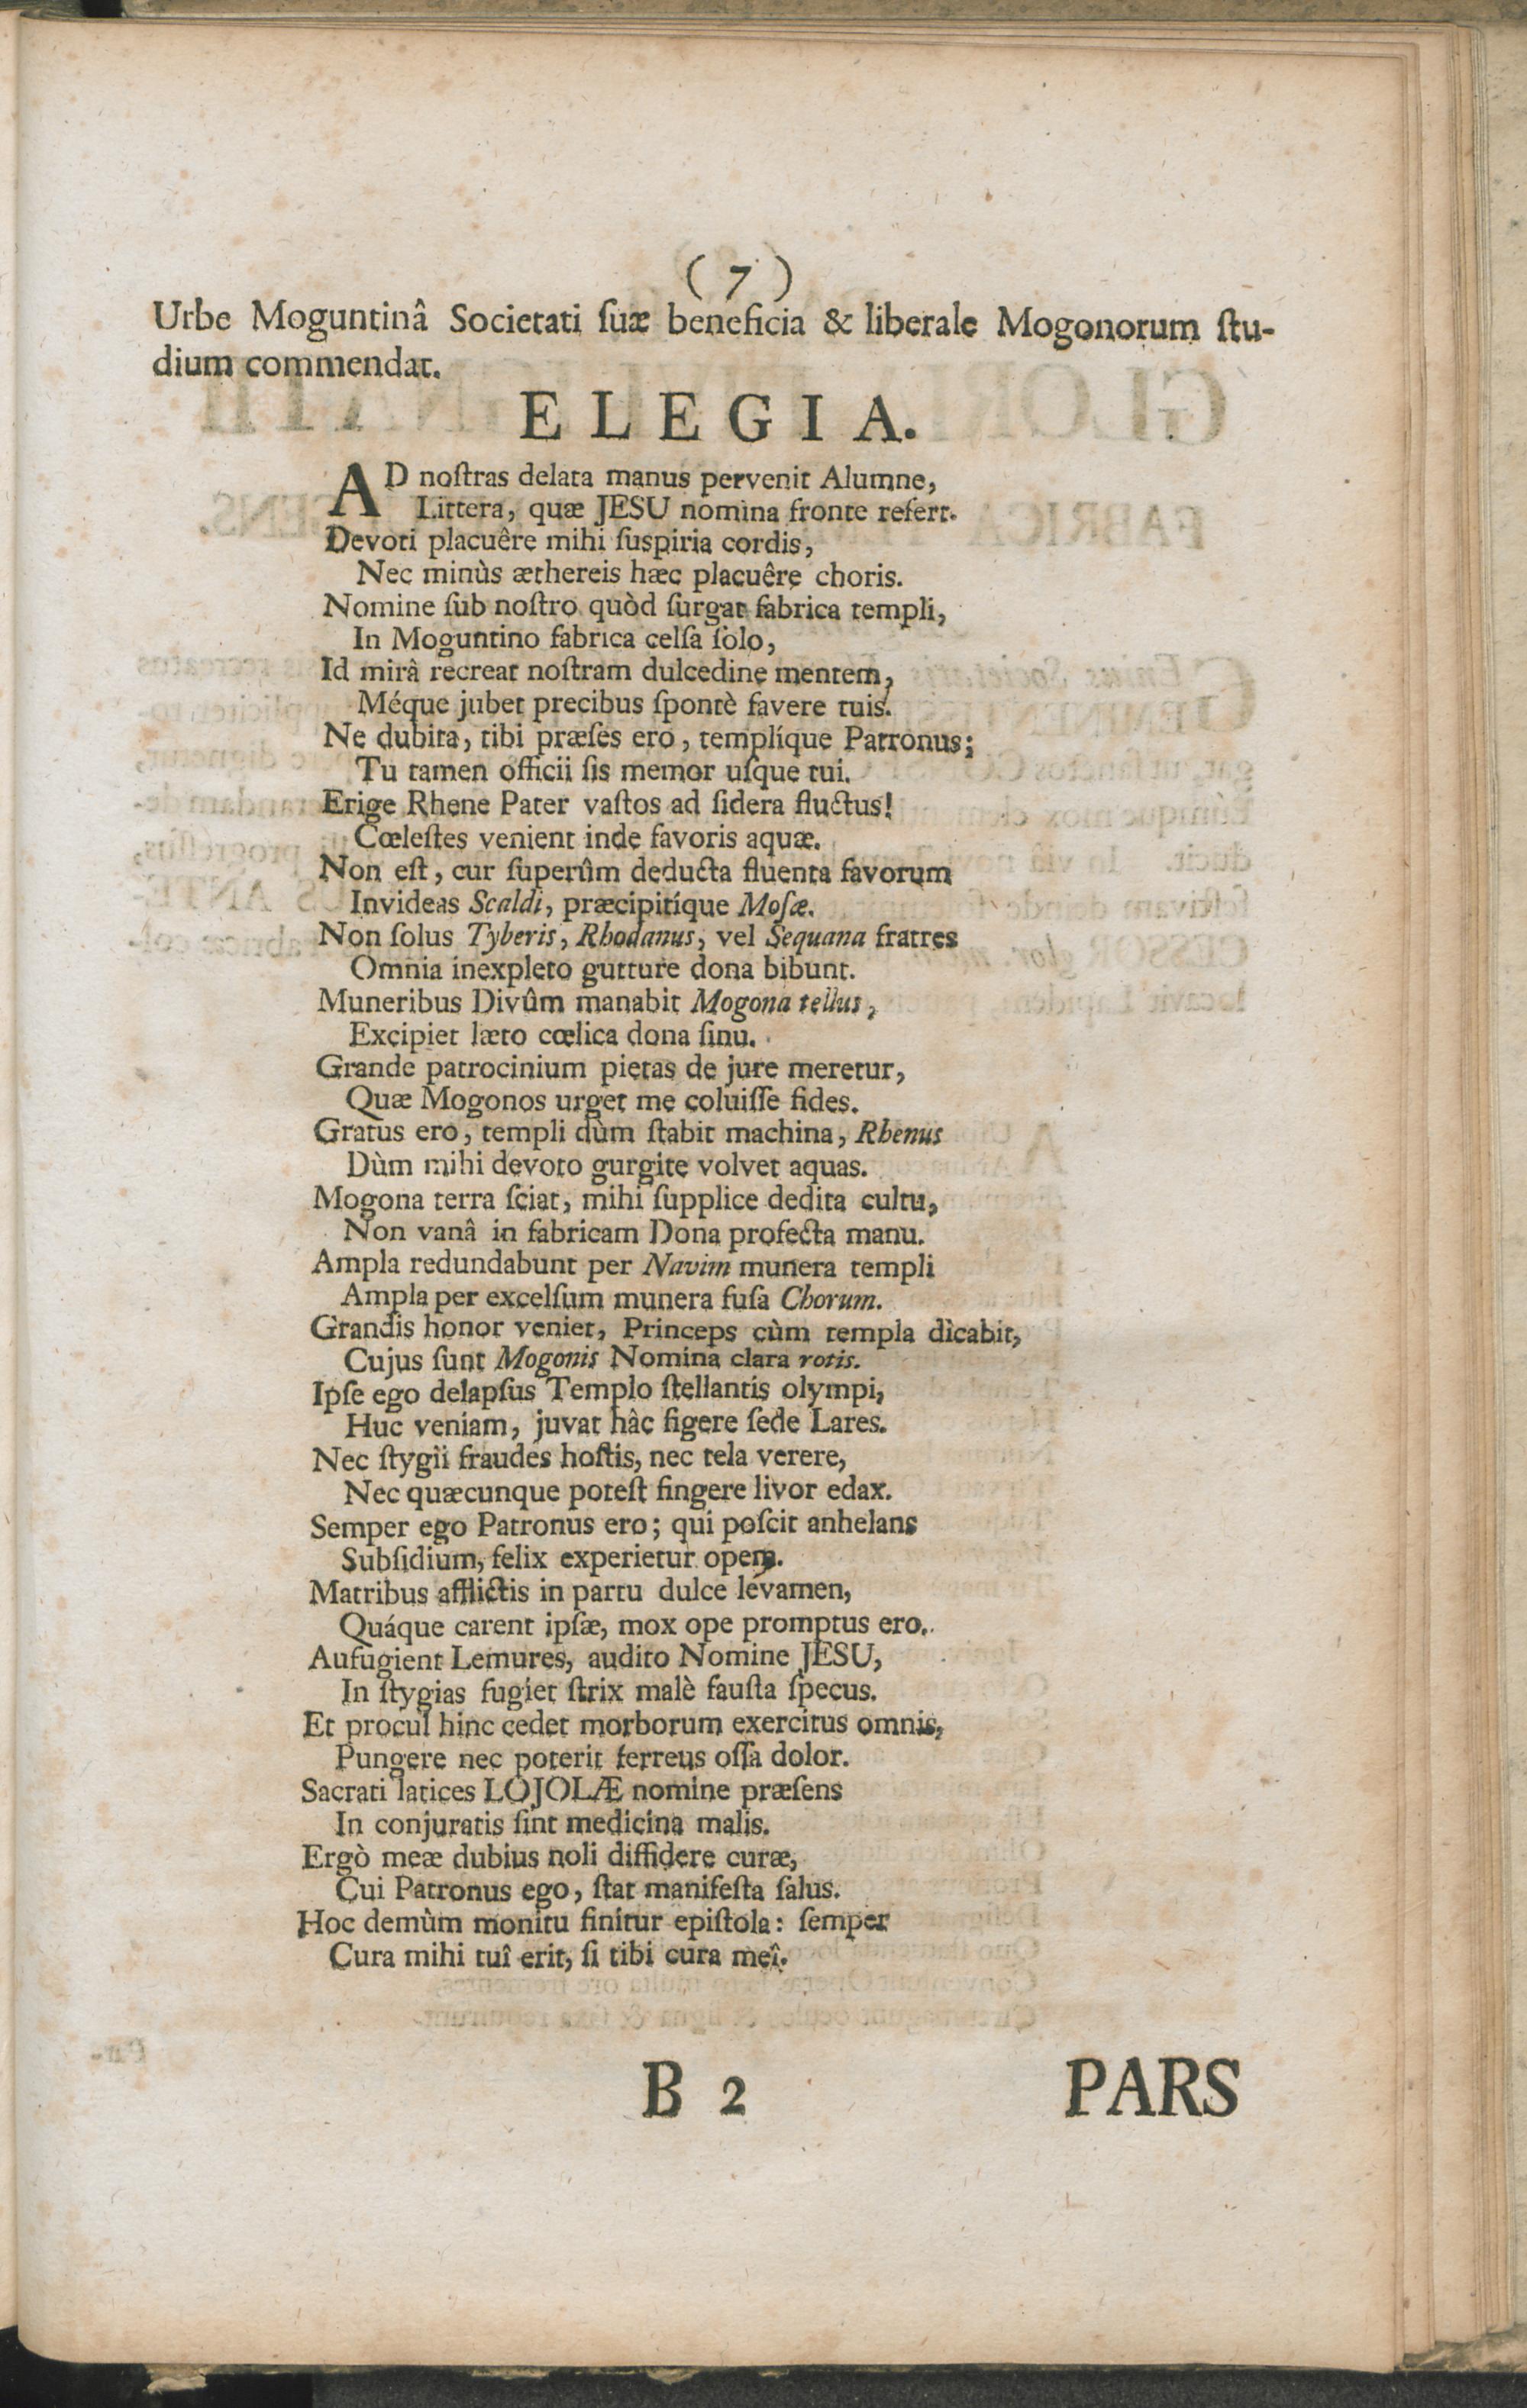 ( 7 )
Urbe Moguntinâ Societati ſuæ beneficia & liberale Mogonorum ſtu-
dium commendat.
ELEGIA.
AD noſtras delata manus pervenit Alumne,
Littera, quæ JESU nomina fronte refert.
Devoti placuêre mihi ſuspiria cordis,
Nec minùs æthereis hæc placuêre choris.
Nomine ſub noſtro quòd ſurgat fabrica templi,
In Moguntino fabrica celſa ſolo,
Id mirâ recreat noſtram dulcedine mentem,
Méque jubet precibus ſpontè favere tuis.
Ne dubita, tibi præſes ero, templíque Patronus;
Tu tamen officii ſis memor uſque tui.
Erige Rhene Pater vaſtos ad ſidera fluctus!
Cœleſtes venient inde favoris aquæ.
Non eſt, cur ſuperûm deducta fluenta favorum
Invideas Scaldi, præcipitíque Moſæ.
Non ſolus Tyberis, Rhodanus, vel Sequana fratres
Omnia inexpleto gutture dona bibunt.
Muneribus Divûm manabit Mogona tellus,
Excipiet læto cœlica dona ſinu.
Grande patrocinium pietas de jure meretur,
Quæ Mogonos urget me coluiſſe fides.
Gratus ero, templi dùm ſtabit machina, Rhenus
Dùm mihi devoto gurgite volvet aquas.
Mogona terra ſciat, mihi ſupplice dedita cultu,
Non vanâ in fabricam Dona profecta manu.
Ampla redundabunt per Navim munera templi
Ampla per excelſum munera fuſa Chorum.
Grandis honor veniet, Princeps cùm templa dicabit,
Cujus ſunt Mogonis Nomina clara rotis.
Ipſe ego delapſus Templo ſtellantis olympi,
Huc veniam, juvat hâc figere ſede Lares.
Nec ſtygii fraudes hoſtis, nec tela verere,
Nec quæcunque poteſt fingere livor edax.
Semper ego Patronus ero; qui poſcit anhelans
Subſidium, felix experietur opem.
Matribus afflictis in partu dulce levamen,
Quáque carent ipſæ, mox ope promptus ero.
Aufugient Lemures, audito Nomine JESU,
In ſtygias fugiet ſtrix malè fauſta ſpecus.
Et procul hinc cedet morborum exercitus omnis,
Pungere nec poterit ferreus oſſa dolor.
Sacrati latices LOJOLÆ nomine præſens
In conjuratis ſint medicina malis.
Ergò meæ dubius noli diffidere curæ,
Cui Patronus ego, ſtat manifeſta ſalus.
Hoc demùm monitu finitur epiſtola: ſemper
Cura mihi tuî erit, ſi tibi cura meî.
B 2 PARS